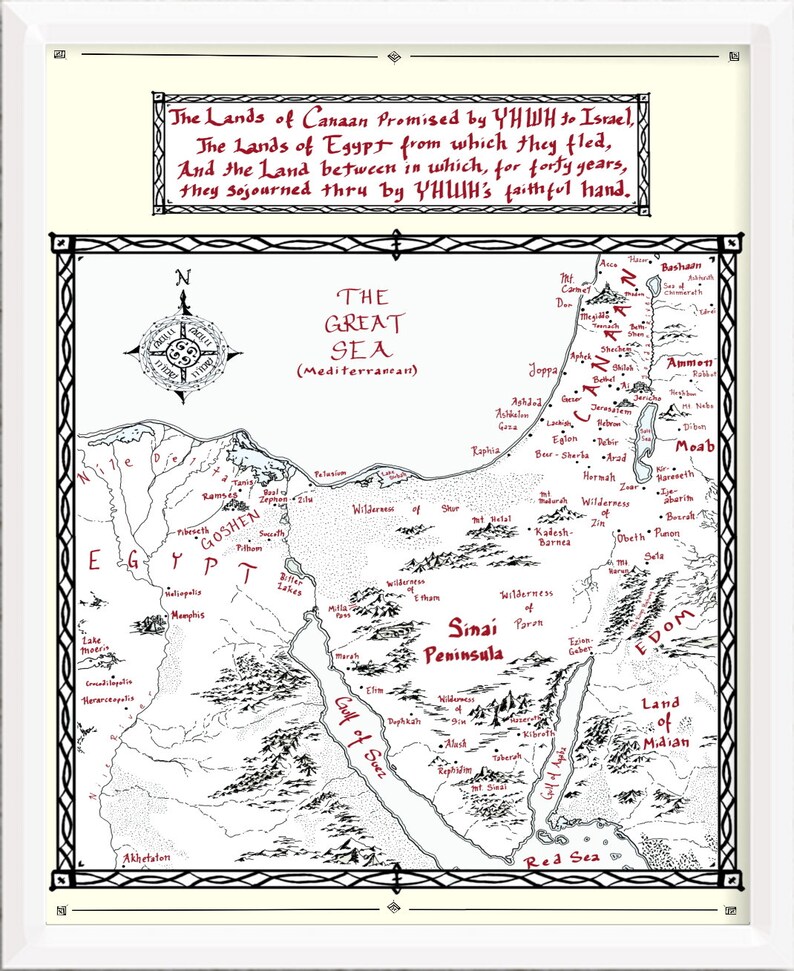 The Lands of Canaan Promised by YHWH to Israel,
The Lands of Egypt from which they fled,
And the Land between in which, for forty years,
they sojourned thru by YHWH's faithful hand.
N
THE
GREAT
SEA
(Mediterranean)
Acco
Hazor
Bashaan
Ashtaroth
Mt.
Carmel
Sea of
Chinnereth
Dor
Madon
Edrei
Megiddo
Taanach
Beth
Shan
CANAAN
Shechem
Aphek
Shiloh
Ammon
Rabbat
Joppa
Bethel
Ai
Heshbon
Jericho
Ashdod
Gezer
Jerusalem
Mt Nebo
Ashkelon
Gaza
Lachish
Hebron
Salt
Sea
Dibon
Eglon
Debir
Moab
Raphia
Beer-Sherba
Arad
Hormah
Zoar
Kir-
Hareneth
Ije-
abarim
Nile Delta
Tanis
Pelusium
Ramses
Baal
Zephon
Zilu
Wilderness of Shur
Mt Helal
Mt
Madurah
Wilderness
of
Zin
Bozrah
GOSHEN
Pibeseth
Succoth
Pithom
Kadesh-
Barnea
Oboth
Punon
EGYPT
Bitter
Lakes
Mt
Harun
Sela
Heliopolis
Wilderness
of
Etham
Wilderness
of
Paran
Mitla
Pass
Memphis
Sinai
Peninsula
EDOM
Lake
Moeris
Marah
Ezion-
Geber
Crocodilopolis
Herarceopolis
Elim
Gulf of Suez
Dophkah
Wilderness
of
Sin
Hazeroth
Kibroth
Land
of
Midian
Alush
Taberah
Rephidim
Mt Sinai
Gulf of Aqaba
Akhetaton
Red Sea